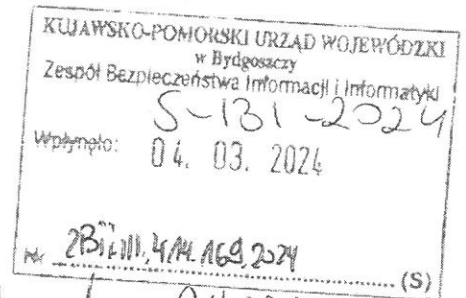 KUJAWSKO-POMORSKI URZĄD WOJEWÓDZKI
w Bydgoszczy
Zespół Bezpieczeństwa Informacji i Informatyki
S-131-2024
Wpłynęło:
04. 03. 2024
Nr ZBiI.III.414.169.2024
(S)